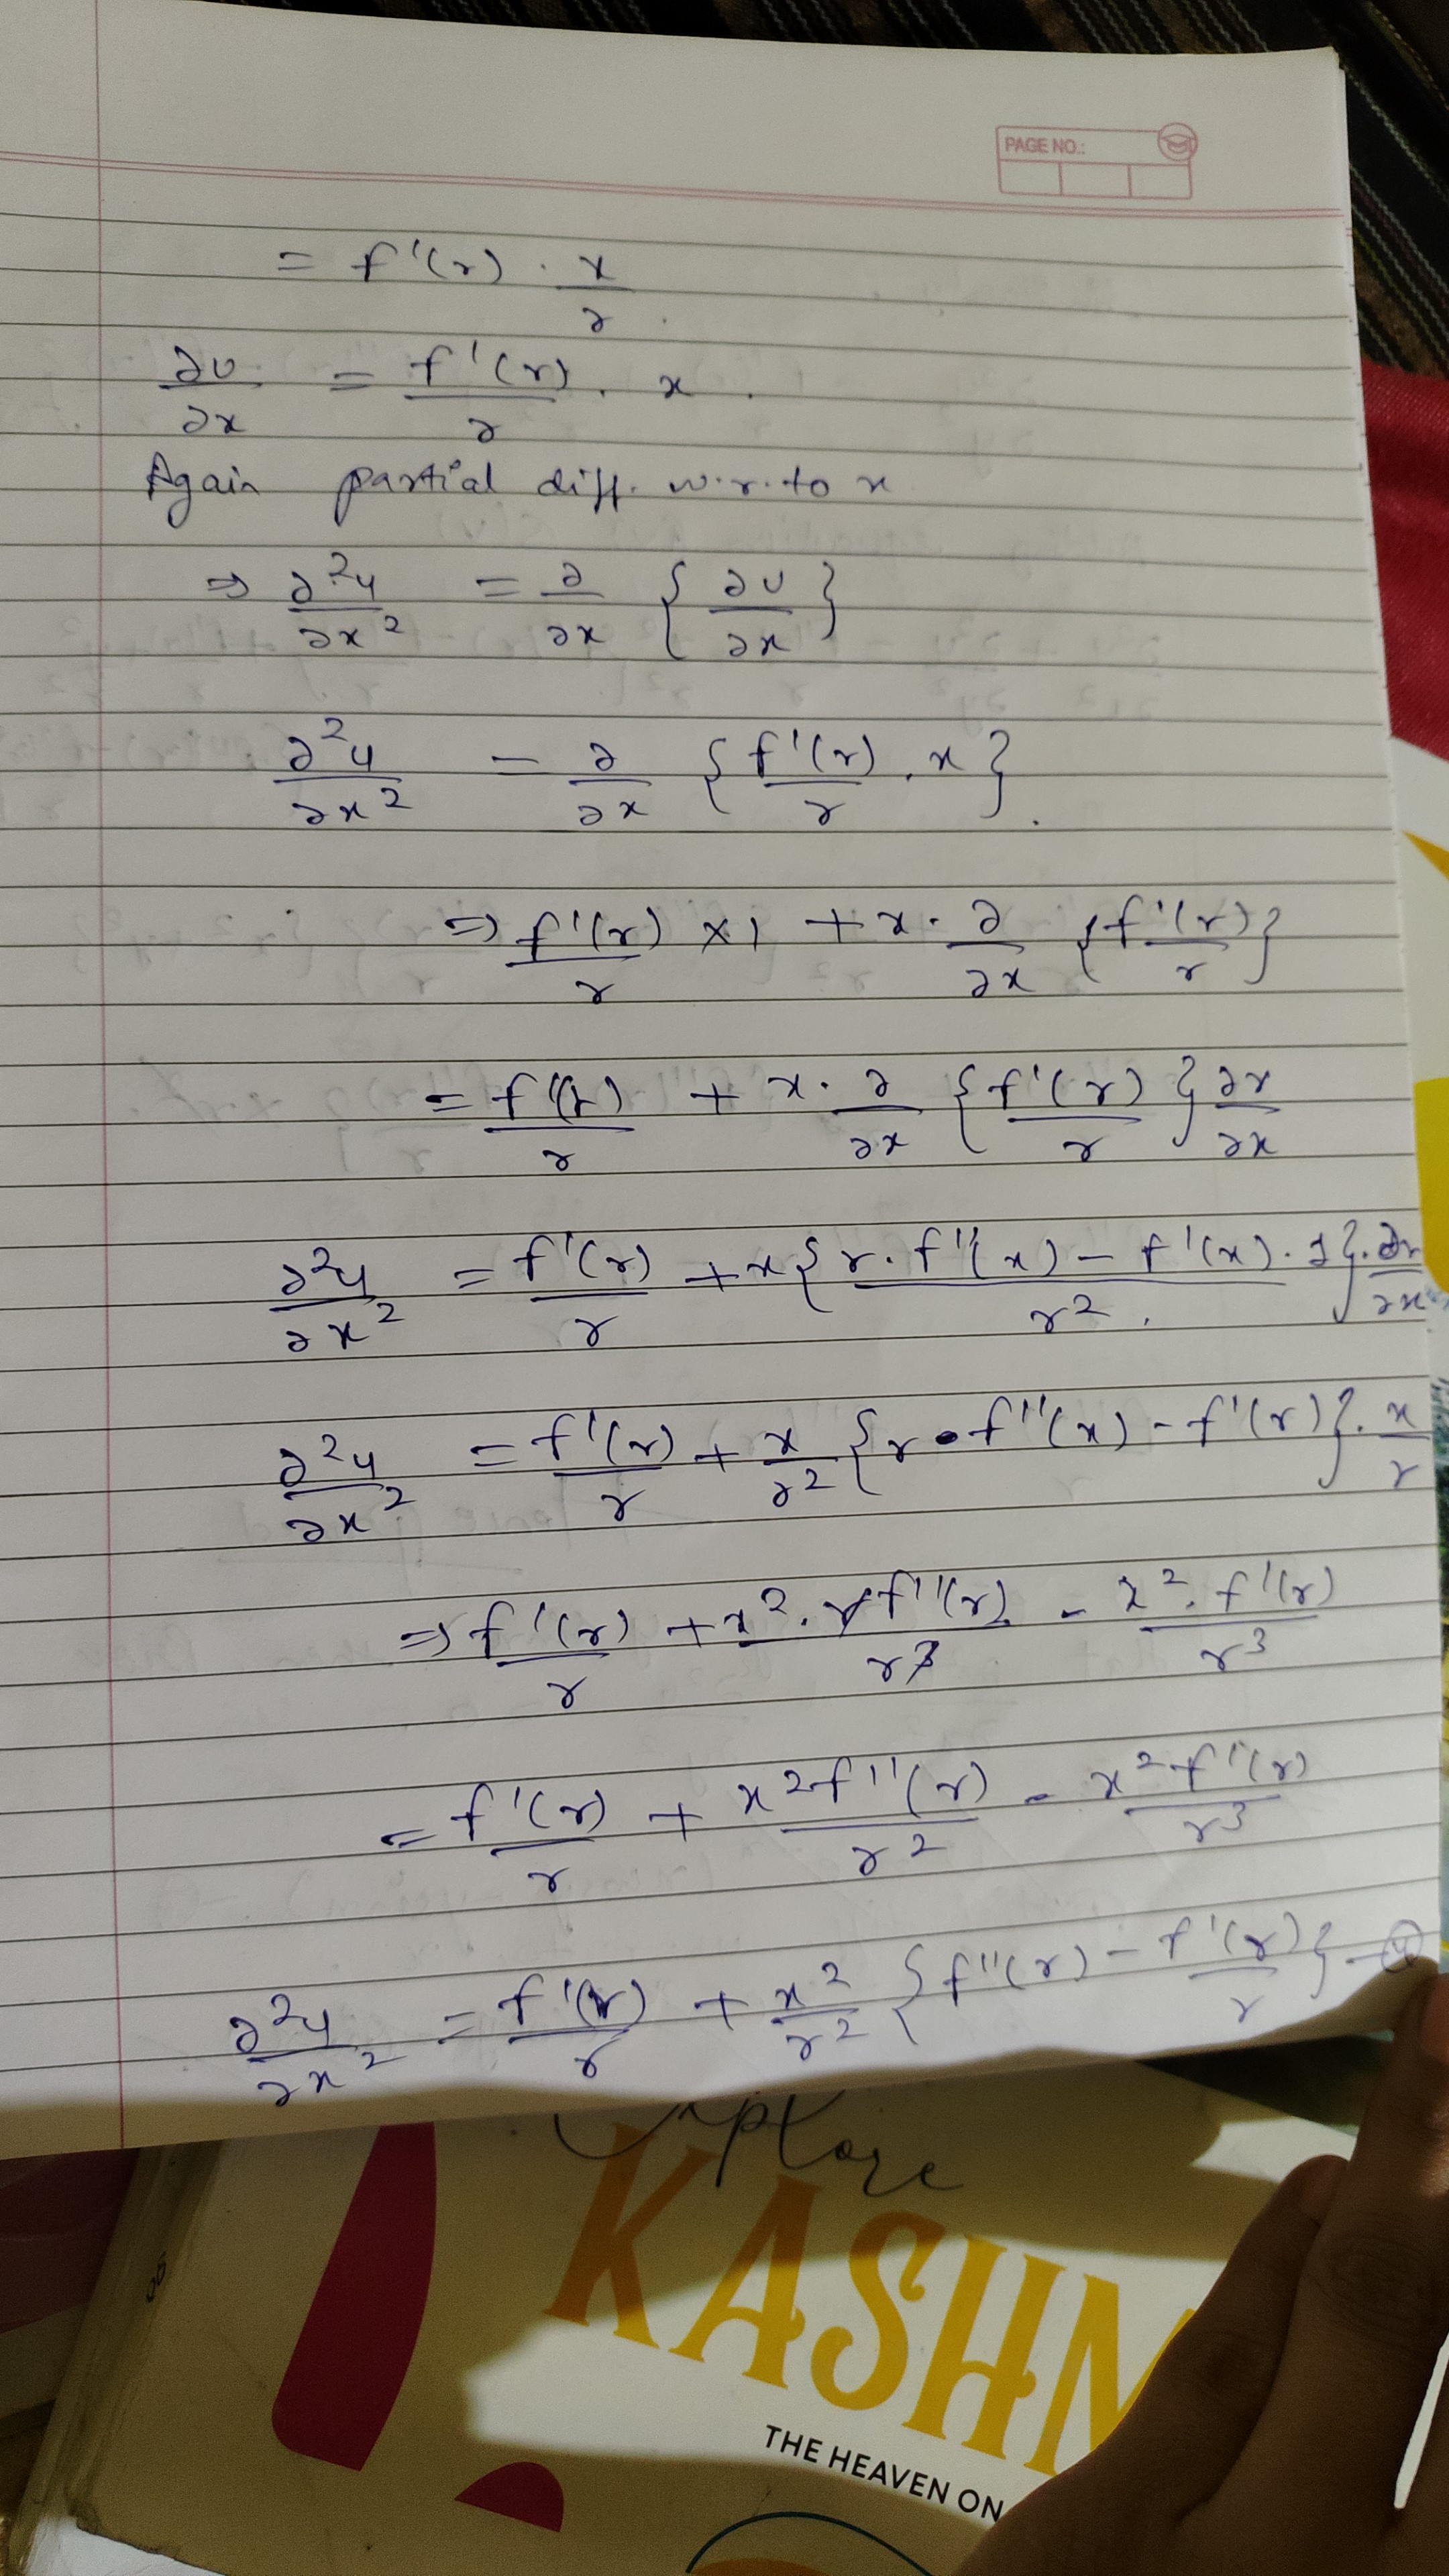 PAGE NO.:
= f'(r) . x/r .
∂u/∂x = f'(r)/r . x .
Again partial diff. w.r.to x
⇒ ∂²u/∂x² = ∂/∂x { ∂u/∂x }
∂²u/∂x² = ∂/∂x { f'(r)/r . x } .
⇒ f'(r)/r × 1 + x . ∂/∂x { f'(r)/r }
= f'(r)/r + x . ∂/∂x { f'(r)/r } ∂r/∂x
∂²u/∂x² = f'(r)/r + x { (r . f''(x) - f'(x) . 1)/r² . } . ∂r/∂x
∂²u/∂x² = f'(r)/r + x/r² { r • f''(x) - f'(r) } . x/r
⇒ f'(r)/r + x² . r f''(r)/r³ - x² . f'(r)/r³
= f'(r)/r + x² f''(r)/r² - x² f'(r)/r³
∂²u/∂x² = f'(r)/r + x²/r² { f''(r) - f'(r)/r } —
Explore
KASHM
THE HEAVEN ON